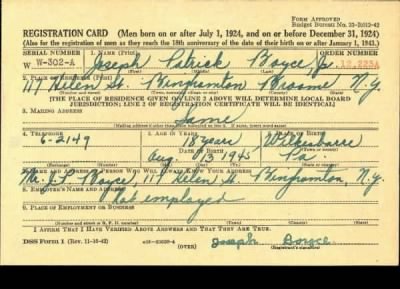 FORM APPROVED
Budget Bureau No. 33-R012-42
REGISTRATION CARD (Men born on or after July 1, 1924, and on or before December 31, 1924)
(Also for the registration of men as they reach the 18th anniversary of the date of their birth on or after January 1, 1943.)
SERIAL NO. 1. NAME (Print) ORDER NO.
W W-302-A Joseph Patrick Boyce, Jr. 12,223A
(First) (Middle) (Last)
2. PLACE OF RESIDENCE (Print)
117 Helen St. Binghamton Broome N.Y.
[THE PLACE OF RESIDENCE GIVEN ON LINE 2 ABOVE WILL DETERMINE LOCAL BOARD
JURISDICTION; LINE 2 OF REGISTRATION CERTIFICATE WILL BE IDENTICAL]
3. MAILING ADDRESS
Same
[Mailing address if other than place indicated on line 2. If same, insert word same]
4. TELEPHONE 5. AGE IN YEARS 6. PLACE OF BIRTH
6-2149 18 years Wilkesbarre
DATE OF BIRTH
Aug. 1945 Pa.
7. NAME AND ADDRESS OF PERSON WHO WILL ALWAYS KNOW YOUR ADDRESS
Mr. J. P. Boyce, 117 Helen St. Binghamton, N.Y.
8. EMPLOYER'S NAME AND ADDRESS
Not employed
9. PLACE OF EMPLOYMENT OR BUSINESS
(Number and street or R. F. D. number) (Town) (County) (State)
I AFFIRM THAT I HAVE VERIFIED ABOVE ANSWERS AND THAT THEY ARE TRUE.
DSS Form 1 (Rev. 11-16-42) (OVER) Joseph Boyce
(Registrant's signature)